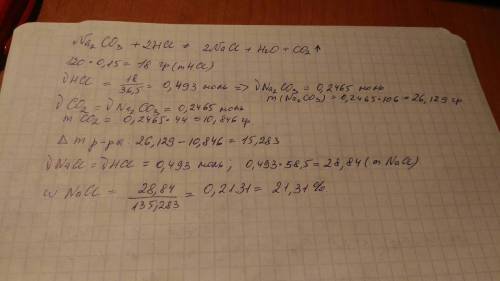 Na₂CO₃ + 2HCl = 2NaCl + H₂O + CO₂↑
120 · 0,15 = 18 гр (mHCl)
νHCl = 18/36,5 = 0,493 моль => νNa₂CO₃ = 0,2465 моль
m(Na₂CO₃) = 0,2465·106 = 26,129 гр
νCO₂ = νNa₂CO₃ = 0,2465 моль
mCO₂ = 0,2465·44 = 10,846 гр.
Δm р-ра 26,129 - 10,846 = 15,283
νNaCl = νHCl = 0,493 моль; 0,493·58,5 = 28,84 (m NaCl)
ω NaCl = 28,84/135,283 = 0,2131 = 21,31 %